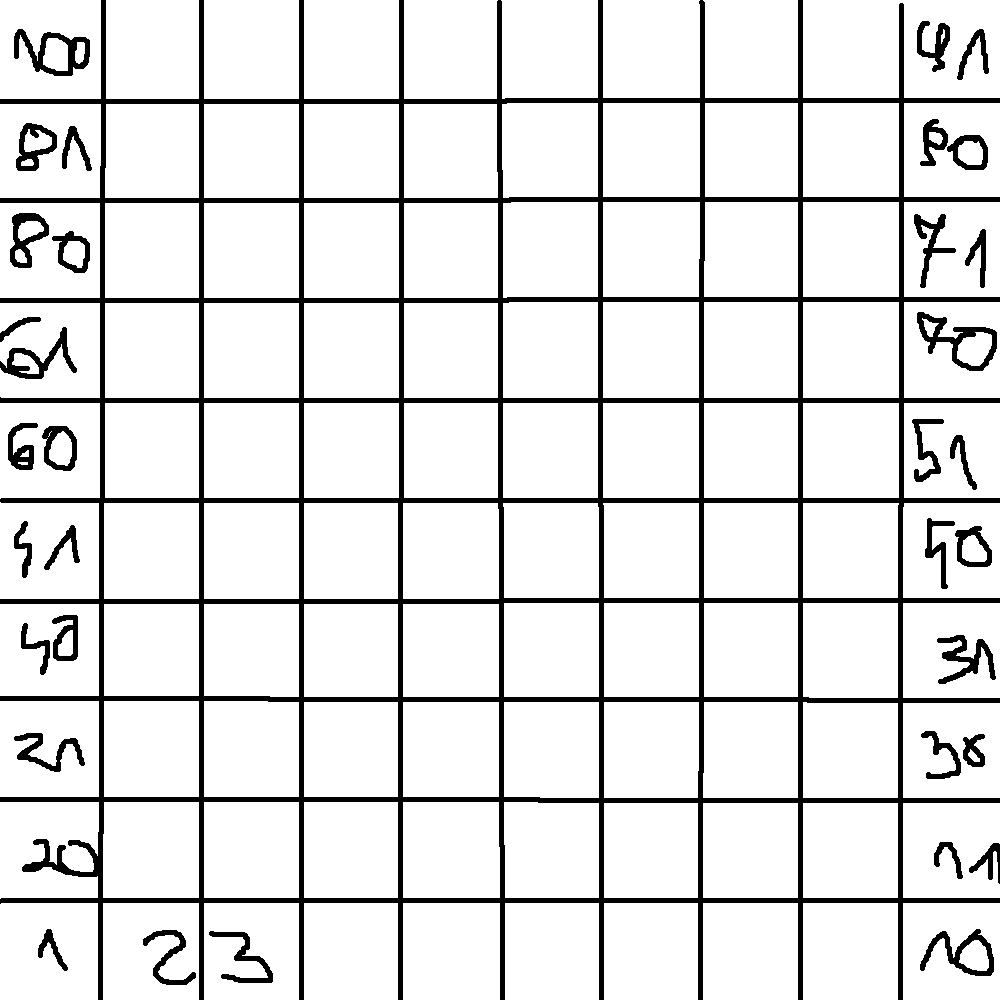 100 91
81 90
80 71
61 70
60 51
41 50
40 31
21 30
20 11
1 2 3 10